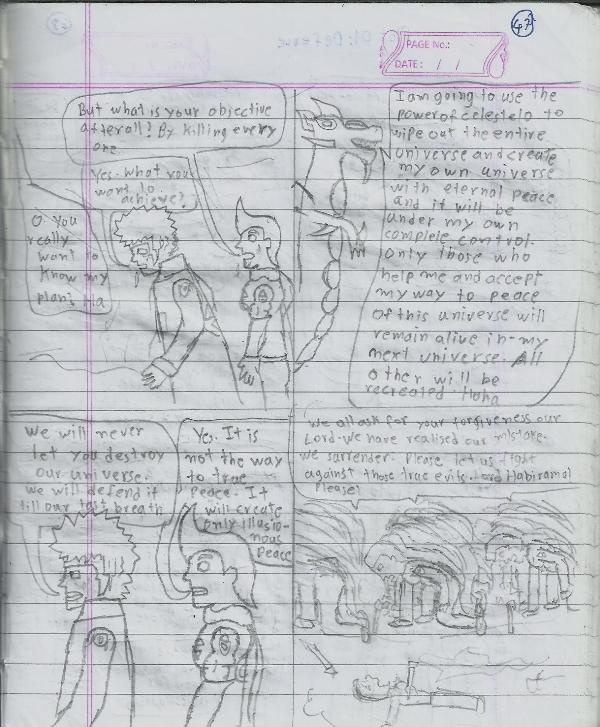 47
PAGE NO.:
DATE: / /
But what is your objective
afterall? By killing every
one
Yes. What you
want to
achieve?
O. You
really
want to
know my
plan? Ha
I am going to use the
power of celestelo to
wipe out the entire
universe and create
my own universe
with eternal peace
and it will be
under my own
complete control.
only those who
help me and accept
my way to peace
of this universe will
remain alive in my
next universe. All
other will be
recreated. Haha
we will never
let you destroy
our universe.
we will defend it
till our last breath
Yes. It is
not the way
to true
peace. It
will create
only illusio-
nous
peace
we all ask for your forgiveness our
Lord. We have realised our mistake.
we surrender. Please let us
against those true evils. Lord Habiramal
Please!